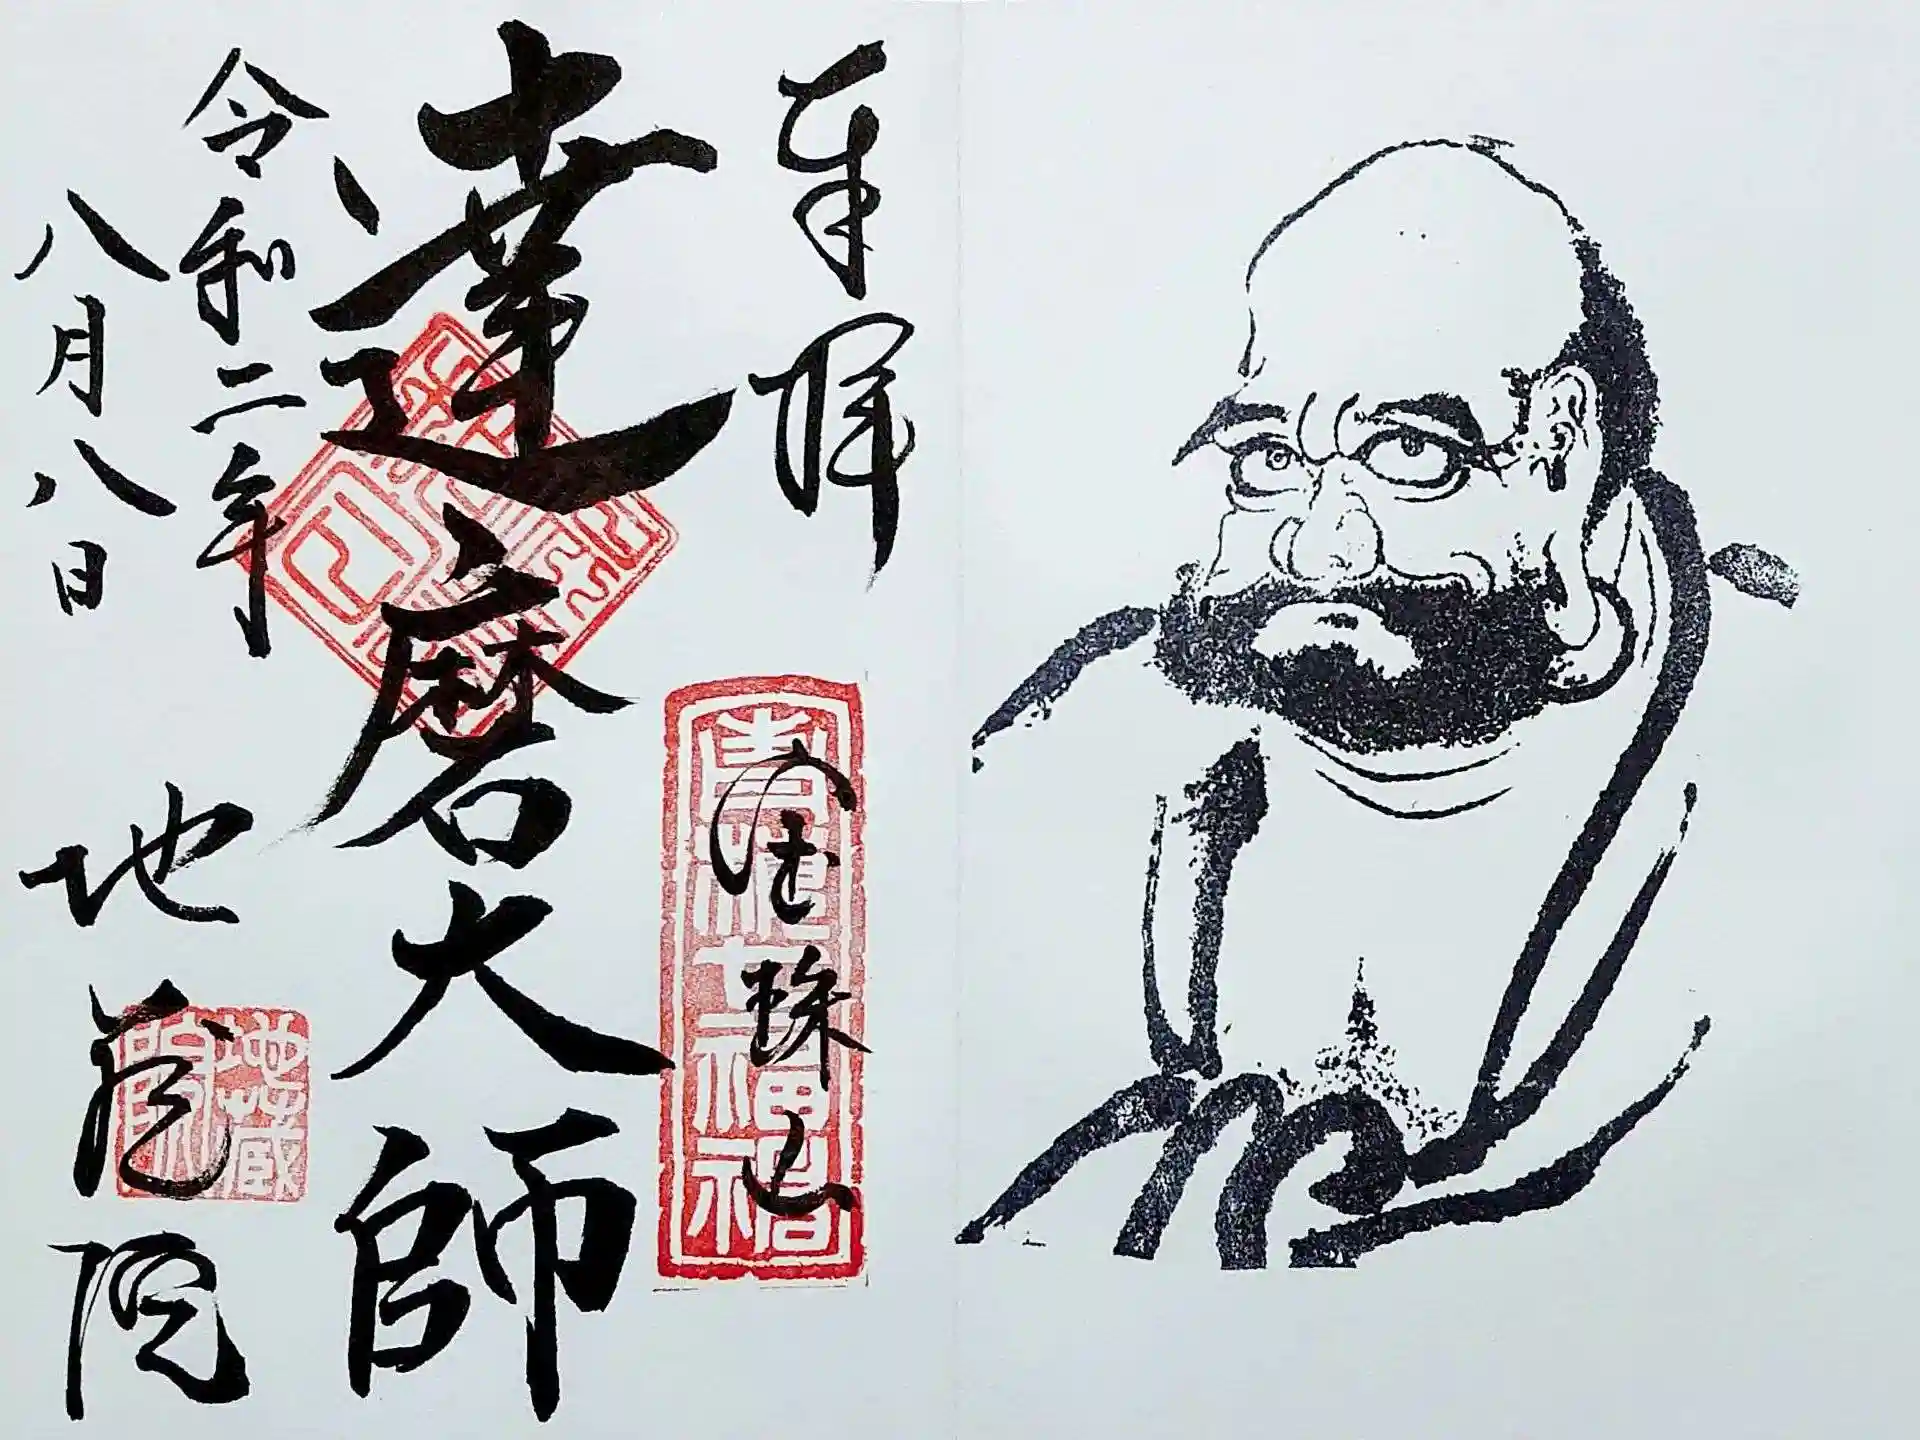 奉拝
宝珠山
達磨大師
令和二年
八月八日
地蔵院
地蔵院